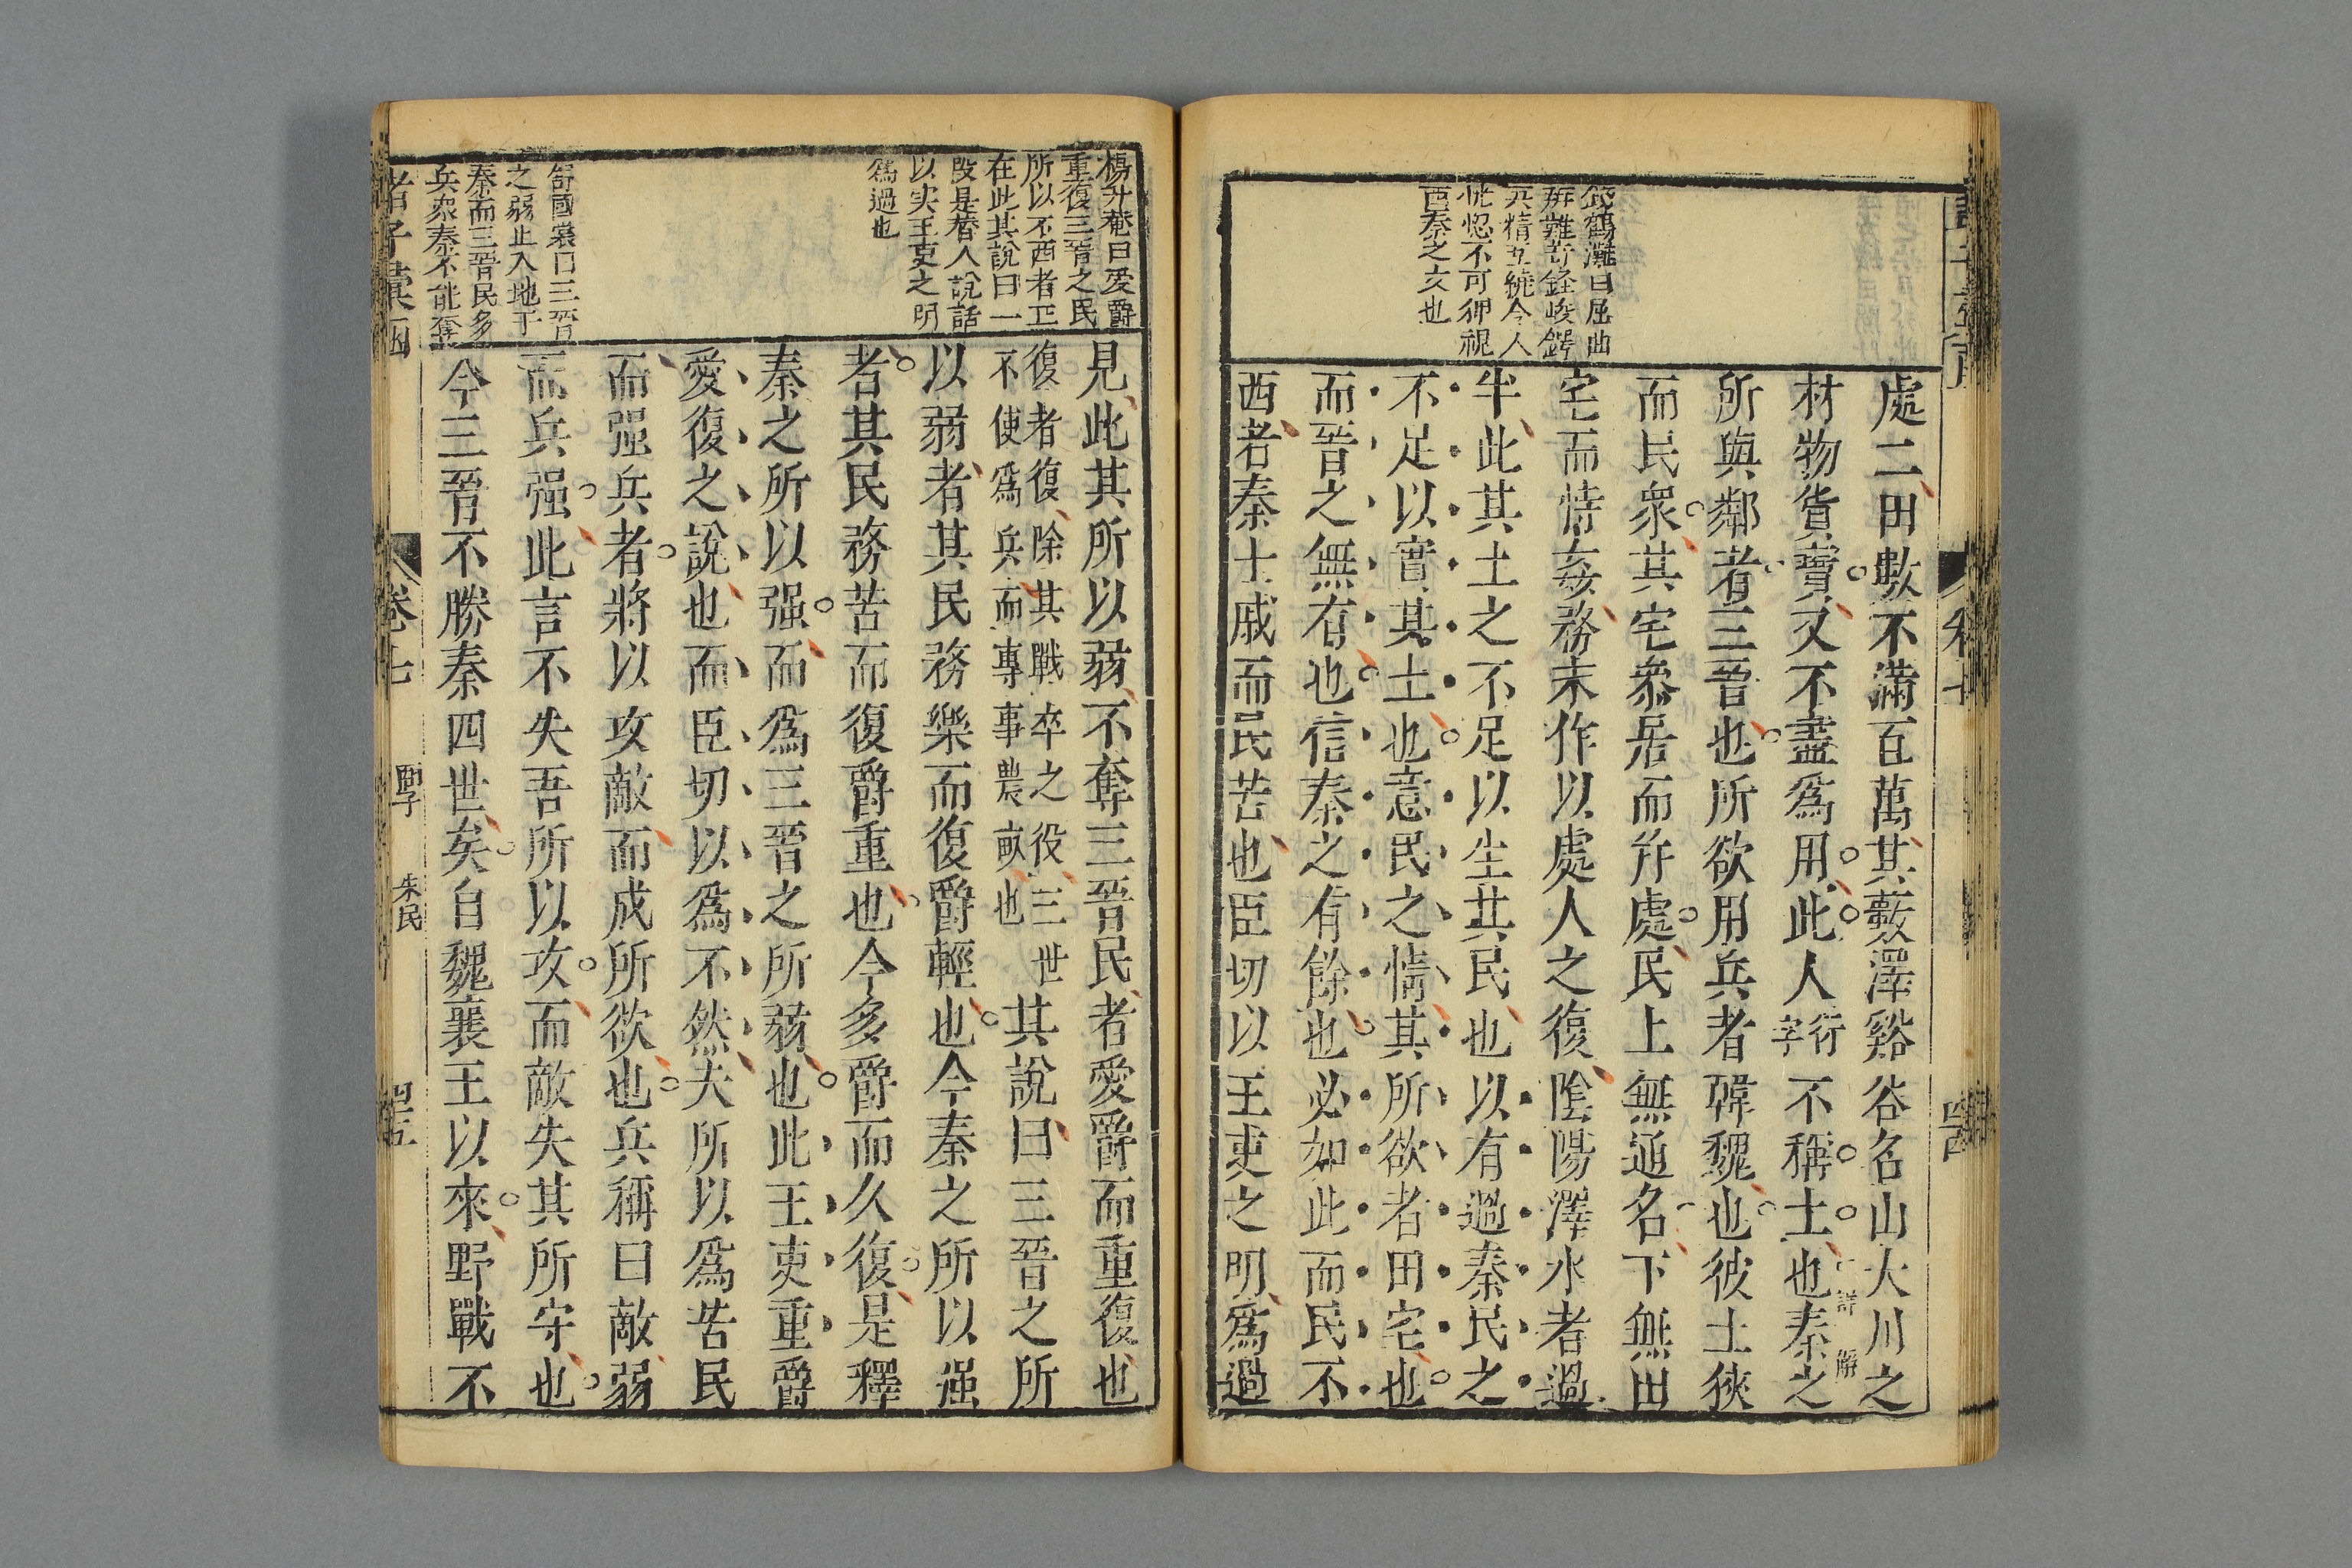 錢鶴灘曰屈曲
辟難苛鋒峻鍔
兵精互繞令人
恍惚不可狎視
西秦之文也
處二田數不滿百萬其藪澤谿谷名山大川之
材物貨寶又不盡爲用此人
行
字
不稱士也
詳
解
秦之
所與鄰者三晉也所欲用兵者韓魏也彼土狹
而民衆其宅參居而并處民上無通名下無田
宅而恃姦務末作以處人之復陰陽澤水者過
半此其土之不足以生其民也以有過秦民之
不足以實其土也意民之情其所欲者田宅也
而晉之無有也信秦之有餘也必如此而民不
西者秦士戚而民苦也臣切以王吏之明爲過
卷七
楊升菴曰愛爵
重復三晉之民
所以不西者正
在此其說曰一
段是替人說話
以实王吏之明
爲過也
舒國裳曰三晉
之弱止入地于
秦而三晉民多
兵衆秦不能奪
見此其所以弱不奪三晉民者愛爵而重復也
復者復除其戰卒之役三世
不使爲兵而專事農畝也
其說曰三晉之所
以弱者其民務樂而復爵輕也今秦之所以强
者其民務苦而復爵重也今多爵而久復是釋
秦之所以强而爲三晉之所弱也此王吏重爵
愛復之說也而臣切以爲不然夫所以爲苦民
而强兵者將以攻敵而成所欲也兵稱曰敵弱
而兵强此言不失吾所以攻而敵失其所守也
今三晉不勝秦四世矣自魏襄王以來野戰不
諸子彙函
卷七
朱民
四五